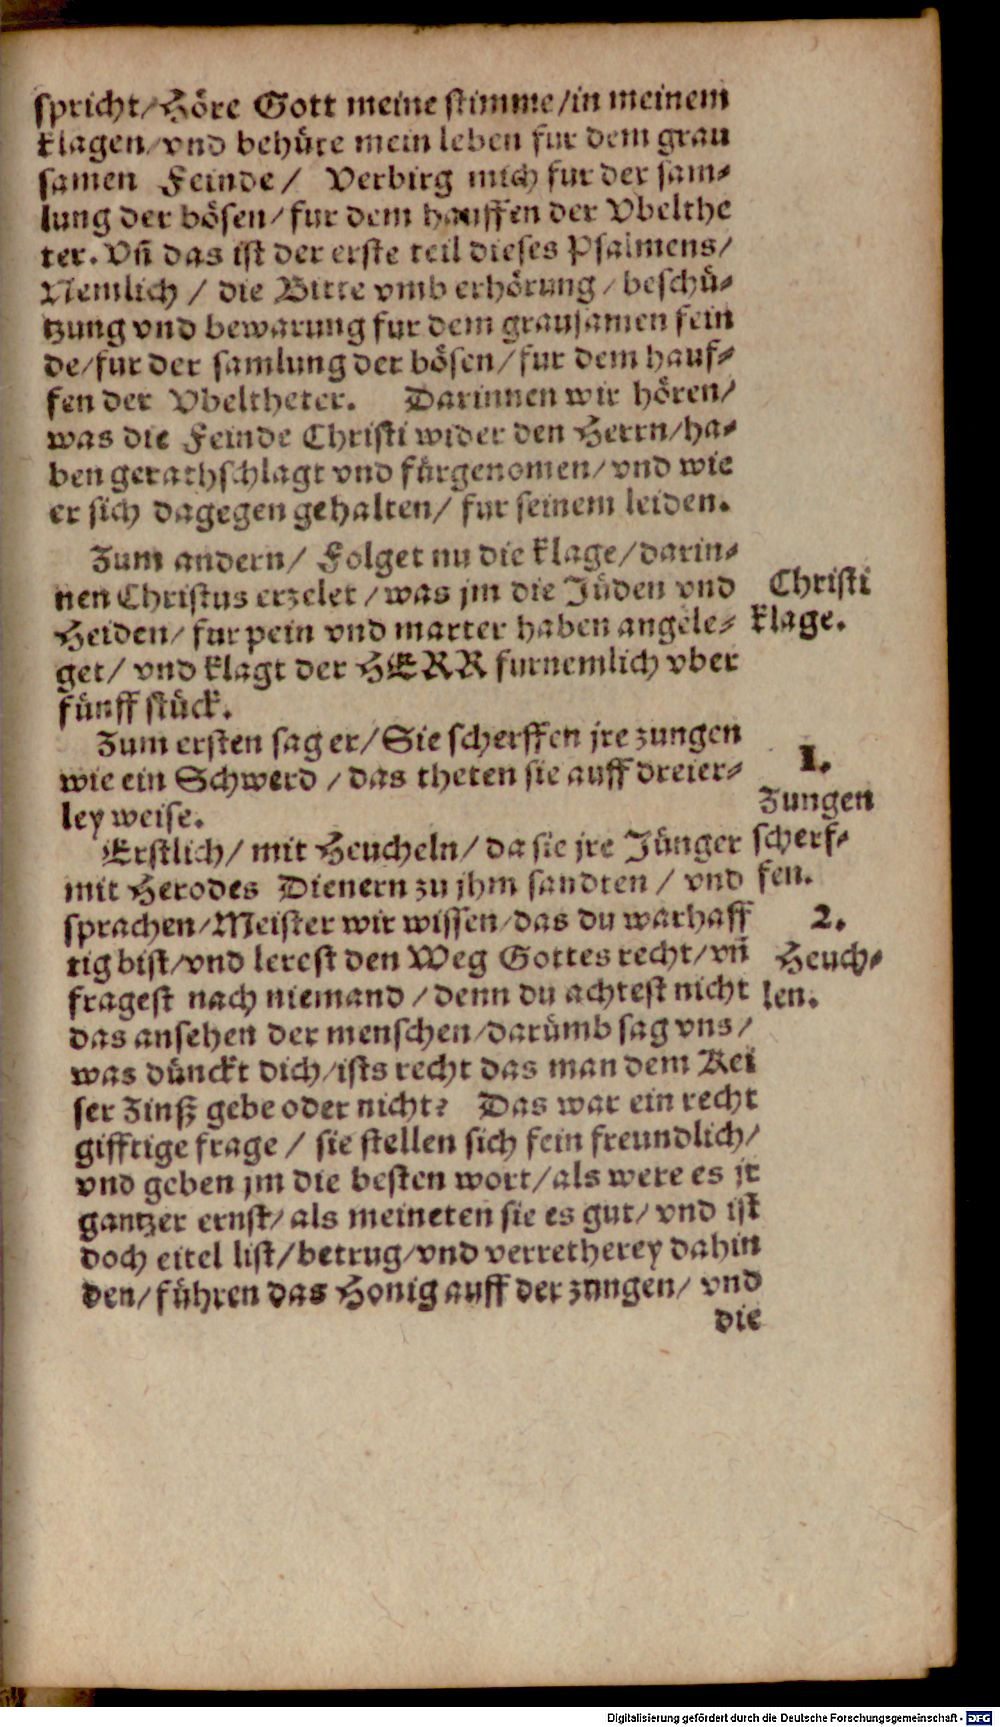 spricht/Höre Gott meine stimme/in meinem
klagen/vnd behüte mein leben fur dem grau
samen Feinde/ Verbirg mich fur der sam-
lung der bösen/fur dem hauffen der Vbelthe
ter. Vñ das ist der erste teil dieses Psalmens/
Nemlich / die Bitte vmb erhörung / beschü-
tzung vnd bewarung fur dem grausamen fein
de/fur der samlung der bösen/fur dem hauf-
fen der Vbeltheter. Darinnen wir hören/
was die Feinde Christi wider den Herrn/ha-
ben gerathschlagt vnd fürgenomen/vnd wie
er sich dagegen gehalten/ fur seinem leiden.
Zum andern/ Folget nu die klage/darin-
nen Christus erzelet /was jm die Jüden vnd
Heiden/ fur pein vnd marter haben angele-
get/ vnd klagt der HERR furnemlich vber
fünff stück.
Christi
klage.
Zum ersten sag er/Sie scherffen jre zungen
wie ein Schwerd /das theten sie auff dreier-
ley weise.
1.
Zungen
scherf-
fen.
Erstlich/ mit Heucheln/ da sie jre Jünger
mit Herodes Dienern zu jhm sandten / vnd
sprachen/Meister wir wissen/das du warhaff
tig bist/vnd lerest den Weg Gottes recht/vñ
fragest nach niemand /denn du achtest nicht
das ansehen der menschen/darümb sag vns/
was dünckt dich/ists recht das man dem Kei
ser Zinß gebe oder nicht? Das war ein recht
gifftige frage / sie stellen sich fein freundlich/
vnd geben jm die besten wort/als were es jr
gantzer ernst/als meineten sie es gut/ vnd ist
doch eitel list/betrug/vnd verretherey dahin
den/führen das Honig auff der zungen/ vnd
die
2.
Heuch-
len.
Digitalisierung gefördert durch die Deutsche Forschungsgemeinschaft - DFG